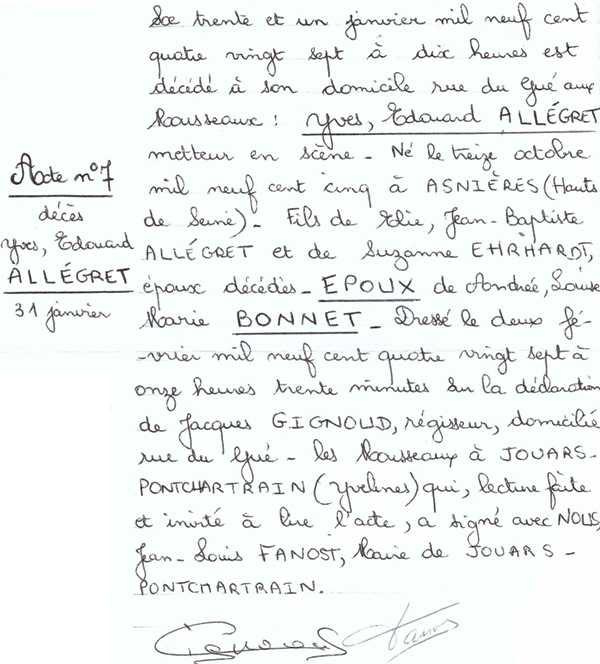 Acte n°7
décès
Yves, Edouard
ALLÉGRET
31 janvier
Le trente et un janvier mil neuf cent
quatre vingt sept à dix heures est
décédé à son domicile rue du Gué aux
Mousseaux : Yves, Edouard ALLÉGRET
metteur en scène - Né le treize octobre
mil neuf cent cinq à ASNIÈRES (Hauts
de Seine) - Fils de Elie, Jean-Baptiste
ALLÉGRET et de Suzanne EHRHARDT,
époux décédés - EPOUX de Andrée, Louise
Marie BONNET - Dressé le deux fé-
-vrier mil neuf cent quatre vingt sept à
onze heures trente minutes sur la déclaration
de Jacques GIGNOUD, régisseur, domicilié
rue du Gué - les Mousseaux à JOUARS-
PONTCHARTRAIN (Yvelines) qui, lecture faite
et invité à lire l'acte, a signé avec NOUS,
Jean-Louis FANOST, Maire de JOUARS -
PONTCHARTRAIN.